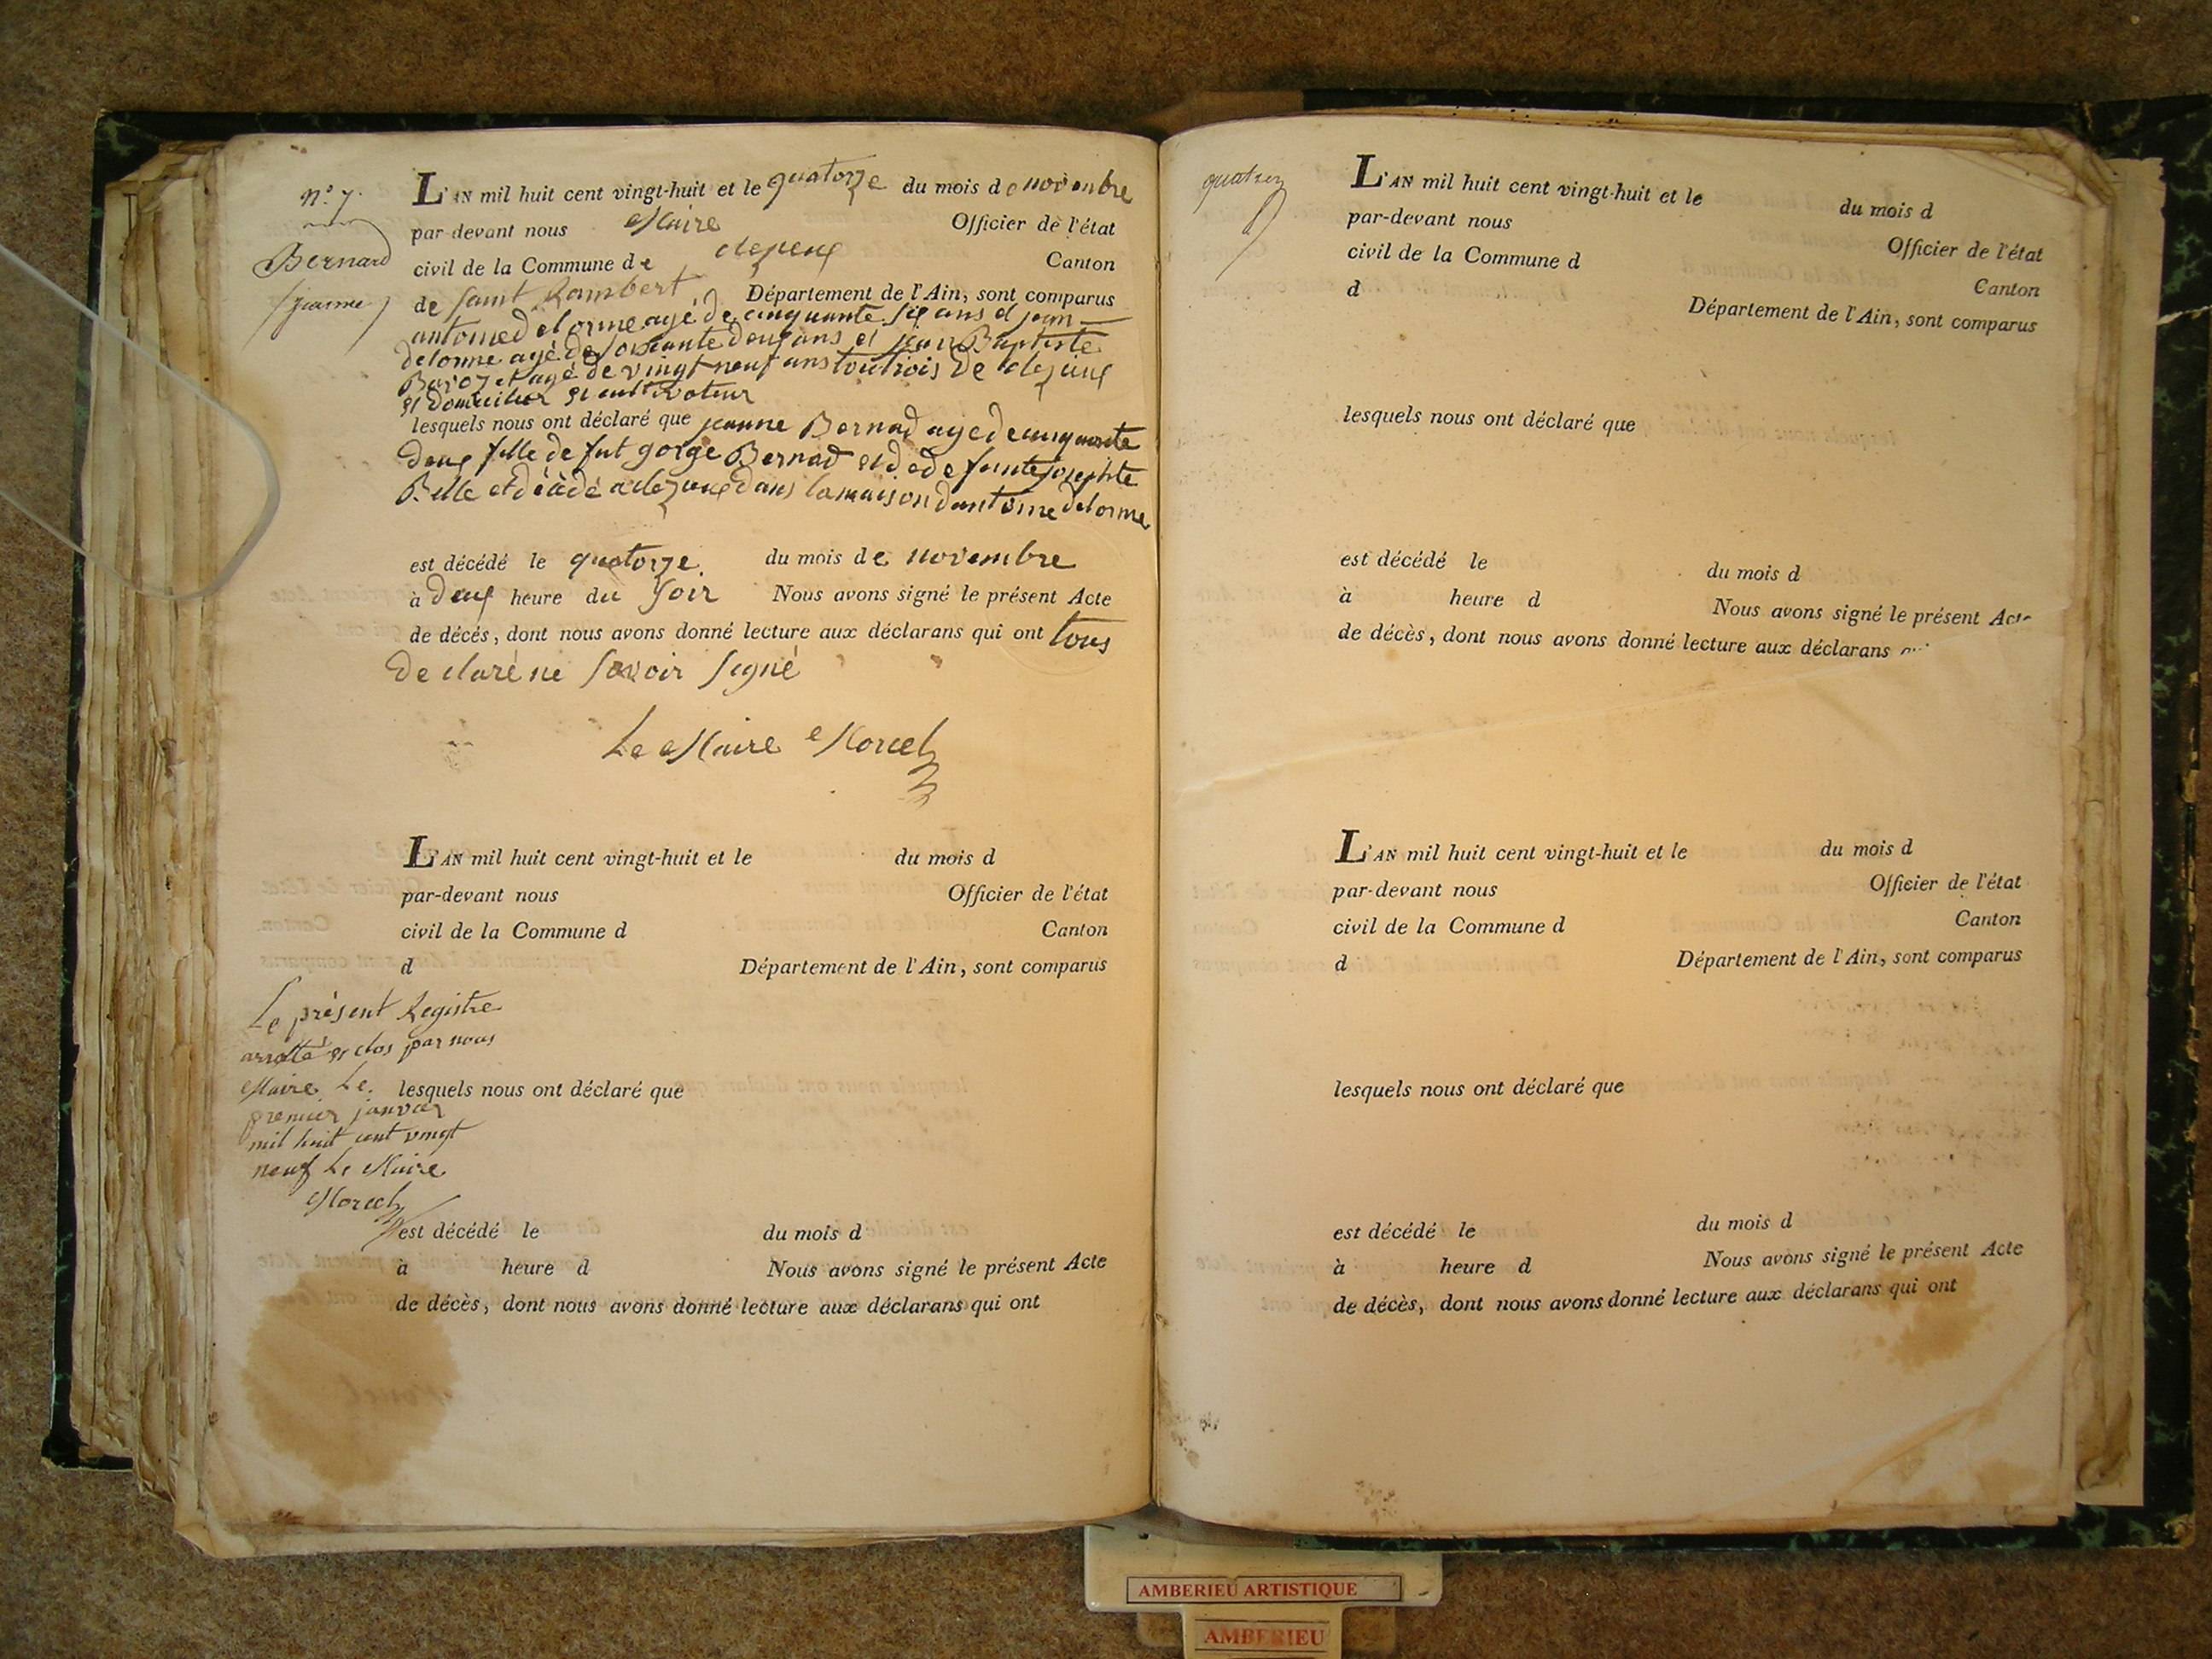 n.° 7.
Bernard
jeanne
L'AN mil huit cent vingt-huit et le quatorze du mois de novembre
par-devant nous Maire Officier de l'état
civil de la Commune de Canton
de saint Rambert Département de l'Ain, sont comparus
antoine delorme agé de cinquante six ans et jean
delorme agé de soixante deux ans et jean Baptiste
agé de vingt neuf ans tout trois de
et et cultivateur
lesquels nous ont déclaré que jeanne Bernad agé de cinquante
deux fille de fut gorge Bernad et de de funte josephte
Belle et décédé a dans la maison dantoine delorme
est décédé le quatorze. du mois de novembre
à deux heure du soir Nous avons signé le présent Acte
de décès, dont nous avons donné lecture aux déclarans qui ont tous
declaré ne savoir signé
Le Maire Morcel
L'AN mil huit cent vingt-huit et le du mois d
par-devant nous Officier de l'état
civil de la Commune d Canton
d Département de l'Ain, sont comparus
Le présent Registre
arretté et clos par nous
Maire Le
lesquels nous ont déclaré que
premier janvier
mil huit cent vingt
neuf Le Maire
Morcel
est décédé le du mois d
à heure d Nous avons signé le présent Acte
de décès, dont nous avons donné lecture aux déclarans qui ont
L'AN mil huit cent vingt-huit et le du mois d
par-devant nous Officier de l'état
civil de la Commune d Canton
d Département de l'Ain, sont comparus
lesquels nous ont déclaré que
est décédé le du mois d
à heure d Nous avons signé le présent Acte
de décès, dont nous avons donné lecture aux déclarans
L'AN mil huit cent vingt-huit et le du mois d
par-devant nous Officier de l'état
civil de la Commune d Canton
d Département de l'Ain, sont comparus
lesquels nous ont déclaré que
est décédé le du mois d
à heure d Nous avons signé le présent Acte
de décès, dont nous avons donné lecture aux déclarans qui ont
AMBERIEU ARTISTIQUE
AMBERIEU